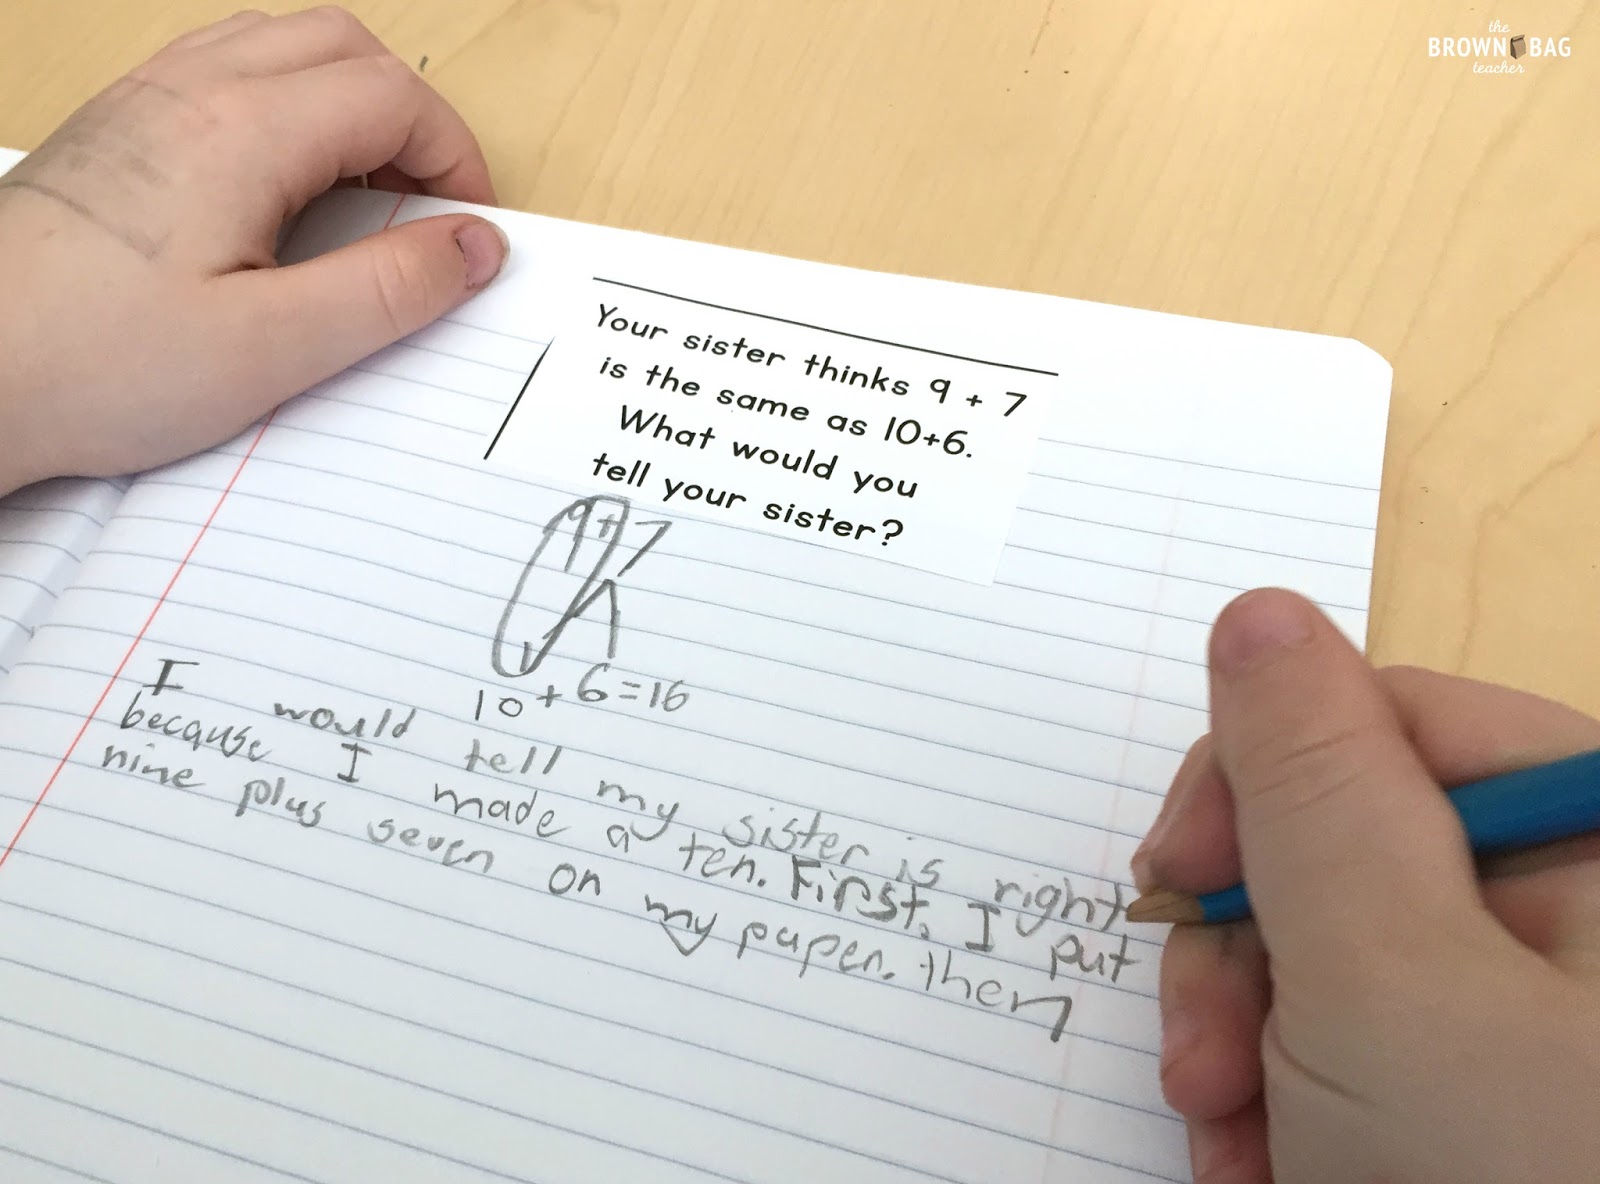 the
BROWN BAG
teacher
Your sister thinks 9 + 7
is the same as 10+6.
What would you
tell your sister?
9+7
1
10 + 6 = 16
I would tell my sister is right
because I made a ten. First, I put
nine plus seven on my paper. then